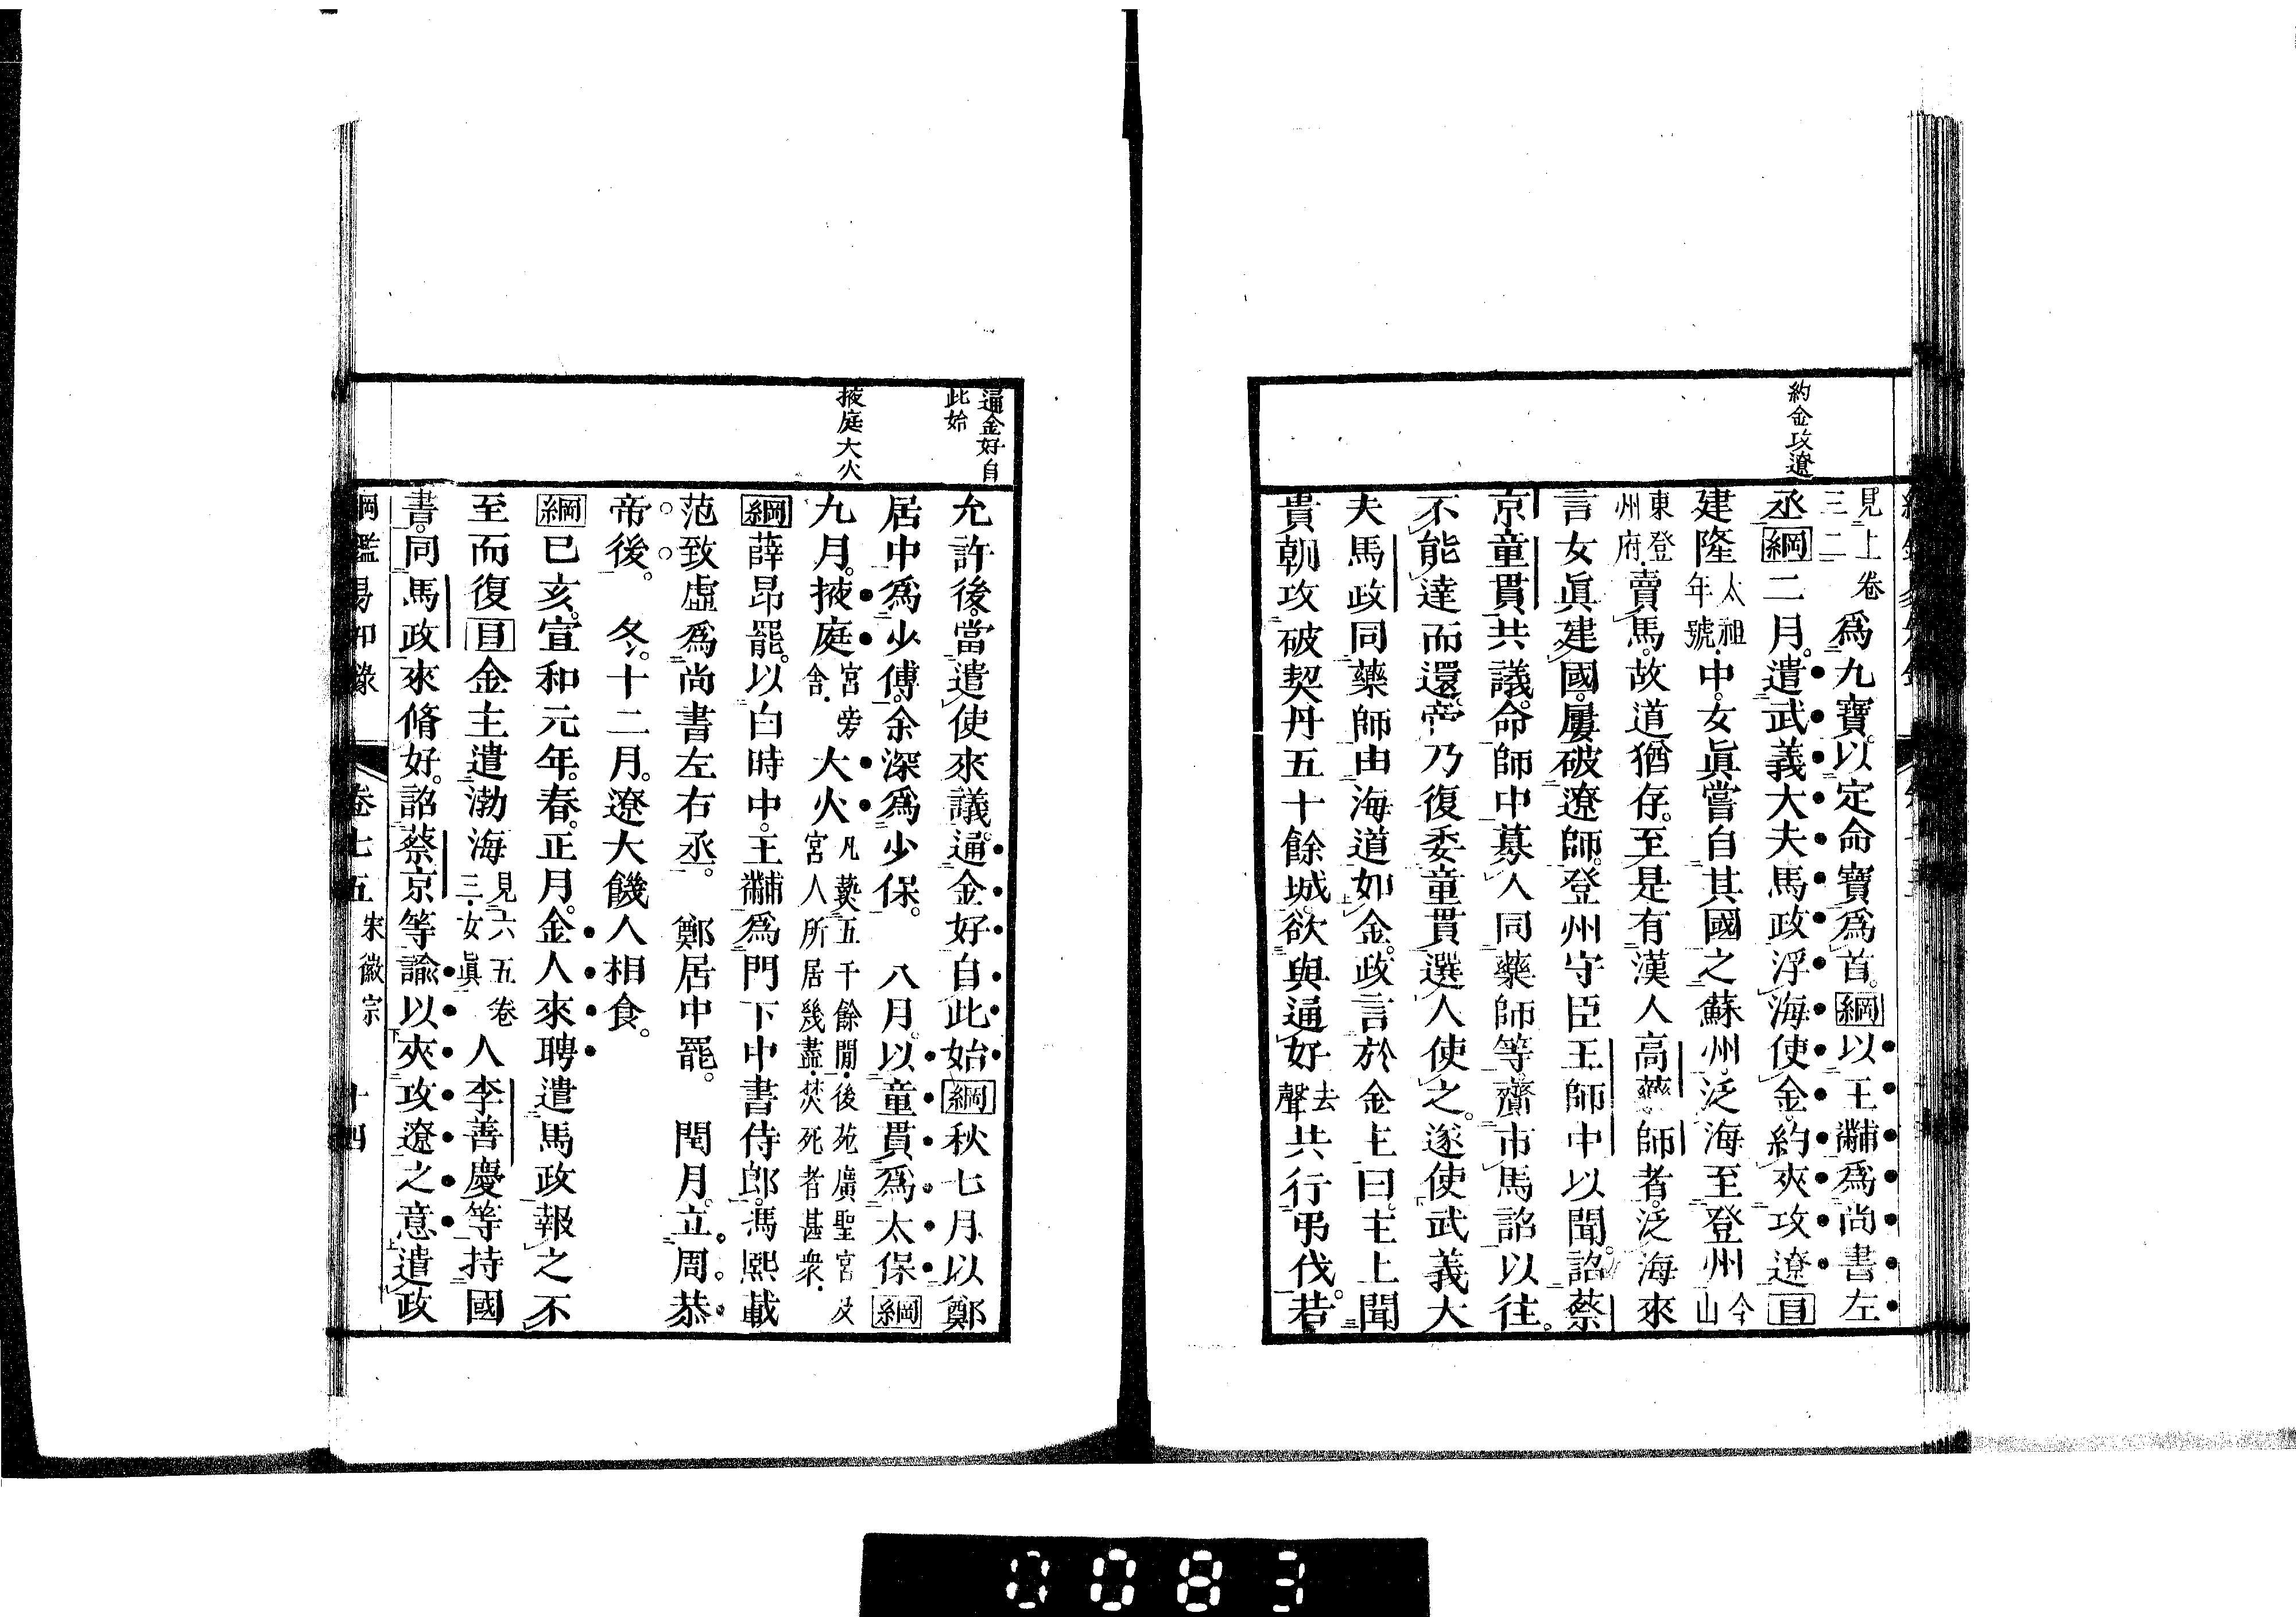 約金攻遼
見上卷三二爲九寶。以定命寶爲首。綱以王黼爲尚書左
丞綱二月。遣武義大夫馬政浮海使金。約夾攻遼目
建隆太祖年號中。女眞嘗自其國之蘇州。泛海至登州今山
東登州府賣馬。故道猶存。至是有漢人高藥師者。泛海來
言女眞建國。屢破遼師。登州守臣王師中以聞。詔蔡
京童貫共議。命師中募人同藥師等。齎市馬詔以往。
不能達而還。帝乃復委童貫選人使之。遂使武義大
夫馬政同藥師由海道如金。政言於金主曰。主上聞
貴朝攻破契丹五十餘城。欲與通好去聲共行弔伐。若
通金好自此始
掖庭大火
允許後。當遣使來議。通金好自此始綱秋七月以鄭
居中爲少傅。余深爲少保。 八月。以童貫爲太保綱
九月。掖庭宮旁舍大火凡爇五千餘間後苑廣聖宮及宮人所居幾盡焚死者甚衆
綱薛昂罷。以白時中。王黼爲門下中書侍郎。馮熙載
范致虛爲尚書左右丞。 鄭居中罷。 閏月。立周恭
帝後。 冬。十二月。遼大饑人相食。
綱己亥。宣和元年。春。正月。金人來聘遣馬政報之不
至而復目金主遣渤海見六五卷三女眞人李善慶等持國
書。同馬政來脩好。詔蔡京等諭以夾攻遼之意遣政
綱鑑易知錄 卷七五 宋徽宗 十四
0083